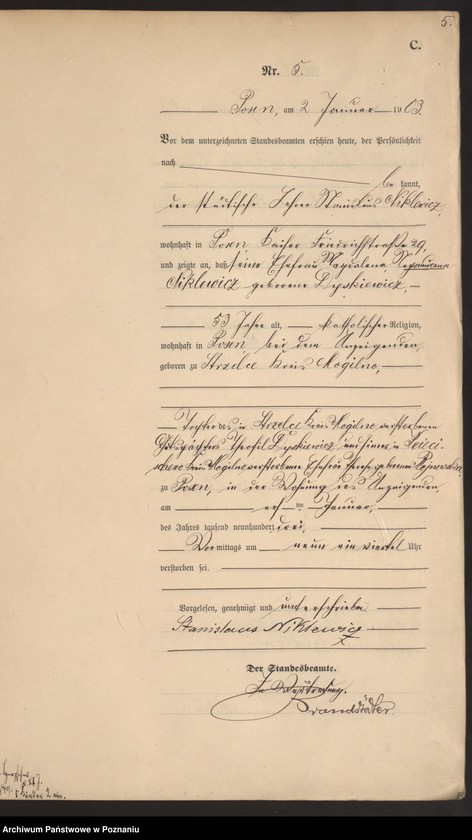 5.
C.
Nr. 5.
Posen, am 2 Januar 1903.
Vor dem unterzeichneten Standesbeamten erschien heute, der Persönlichkeit
nach
bekannt,
der städtische Lehrer Stanislaus Niklewicz,
wohnhaft in Posen, Kaiser Friedrichstraße 29,
und zeigte an, daß seine Ehefrau Magdalena Nepomucena
Niklewicz geborene Dyskiewicz,
53 Jahre alt, katholischer Religion,
wohnhaft in Posen bei dem Anzeigenden,
geboren zu Strzelce Kreis Mogilno,
Tochter des in Strzelce Kreis Mogilno verstorbenen
Gutspächters Theofil Dyskiewicz und seiner in
Kreis Mogilno verstorbenen Ehefrau geborenen
zu Posen, in der Wohnung des Anzeigenden,
am ersten Januar,
des Jahres tausend neunhundert drei,
Vormittags um neun ein viertel Uhr
verstorben sei.
Vorgelesen, genehmigt und unterschrieben
Stanislaus Niklewicz
Der Standesbeamte.
In Vertretung.
Brandstäter.
5 Stunden 2 min.
Archiwum Państwowe w Poznaniu